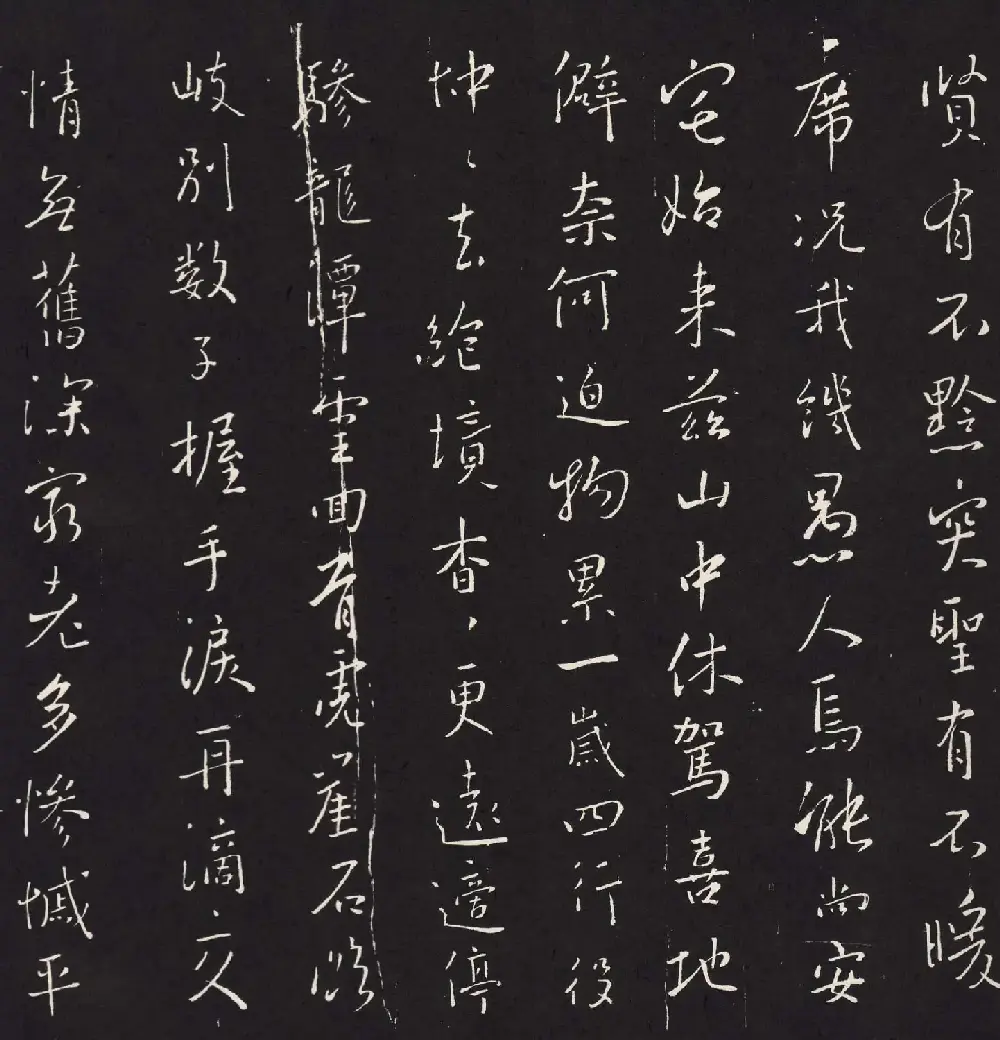 賢有不黔突聖有不暖
席況我饑愚人焉能尚安
宅始来茲山中休駕喜地
僻奈何迫物累一歲四行役
忡〻去絶境杳〻更遠適停
驂龍潭雲囬首虎崖石臨
岐別数子握手淚再滴交
情無舊深窮老多慘慽平